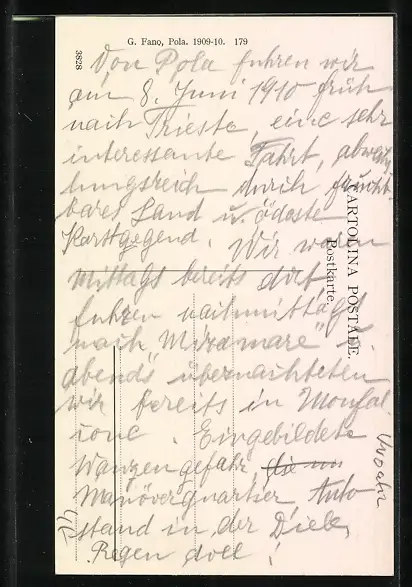 G. Fano, Pola. 1909-10. 179
3828
CARTOLINA POSTALE.
Postkarte.
Von Pola fuhren wir
am 8. Juni 1910 früh
nach Trieste, eine sehr
interessante Fahrt, abwechs-
lungsreich durch frucht-
bares Land u. ödeste
Karstgegend. Wir waren
Mittags bereits dort
fuhren nachmittags
nach „Miramare" u.
abends übernachteten
wir bereits in Monfal-
cone. Eingebildete
Wanzengefahr
Manöverquartier Auto
stand in der Diele,
Regen doll!